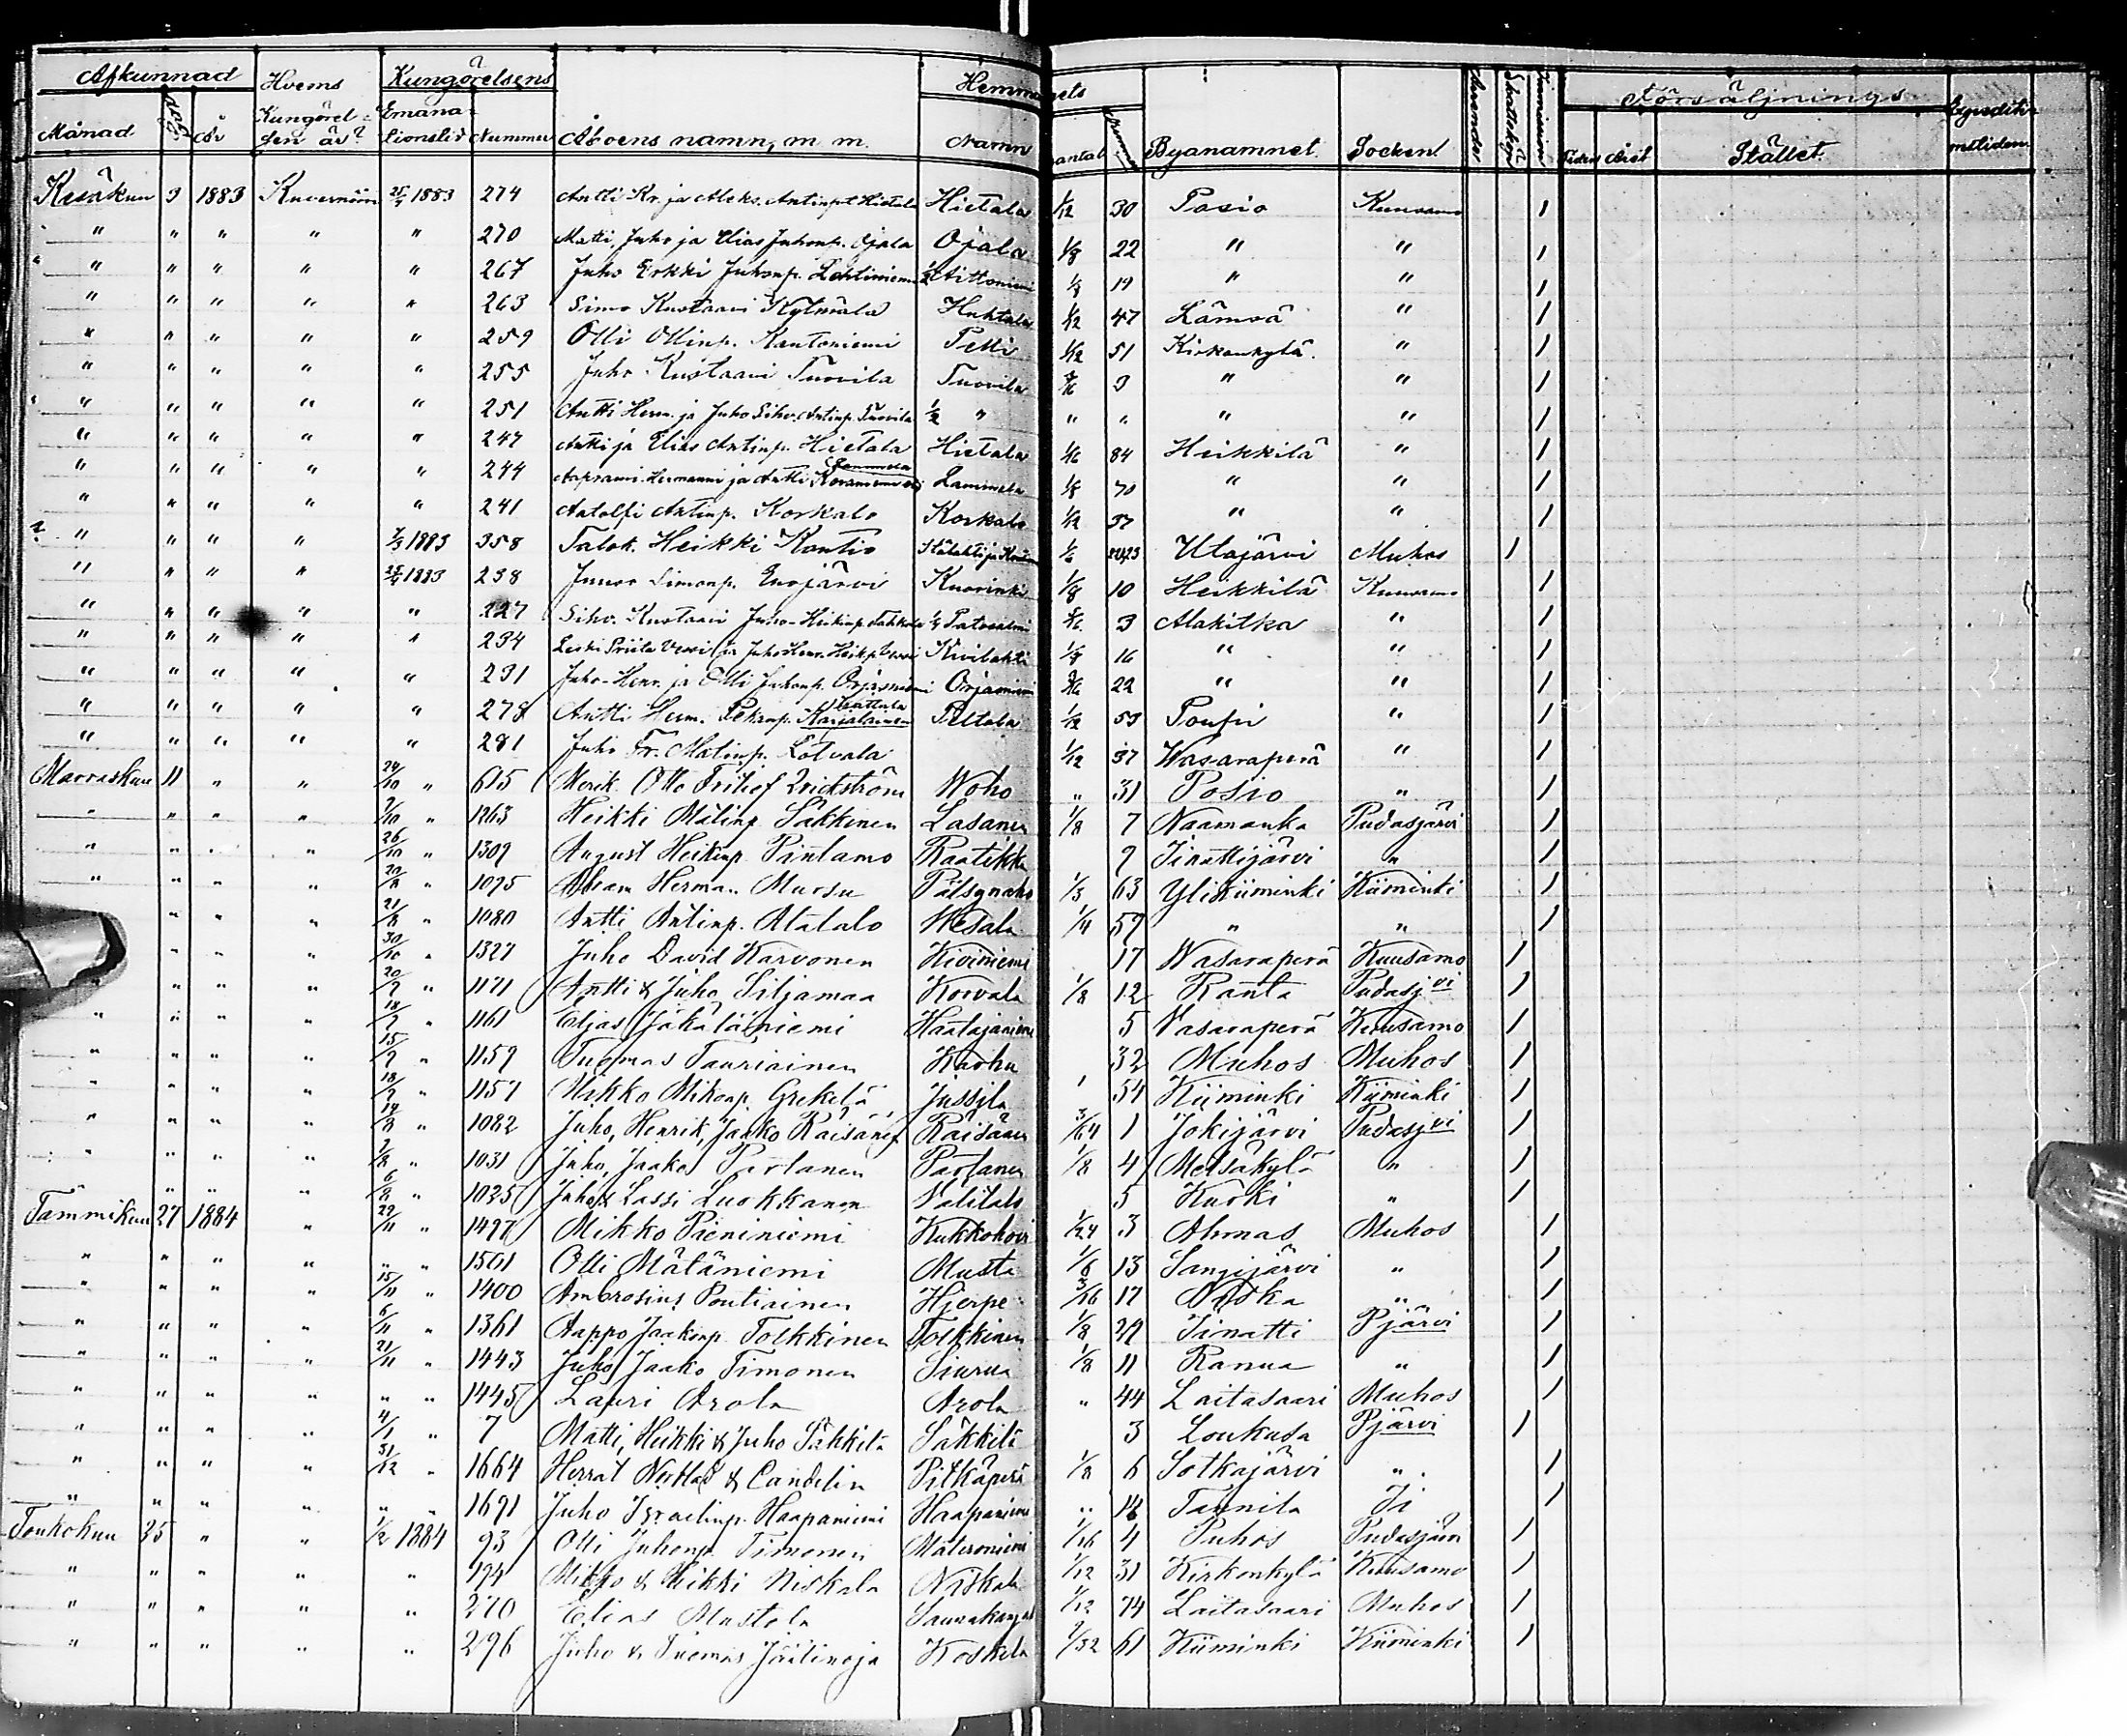 Afkunnad Hvems Kungörelsens Hemmanets Försäljnings
Månad dag År Kungörel- sen är? Emana- tionstid Nummer Åboens namn, m. m. Namn mantal Byanamnet. Socken! Skatteköp Tiden Året Stället.
Kesäkuu 3 1883 Kuvernörin 25/4 1883 274 Antti Kr. ja Aleks. Antinp. Hietala Hietala 1/12 30 Posio Kuusamo 1
" " " " " 270 Matti, Juho ja Elias Juhonp. Ojala Ojala 1/8 22 " " 1
" " " " " 267 Juho Erkki Juhonp. Lehtiniemi 1/2 Aittoniemi 1/8 19 " " 1
" " " " " 263 Simo Kustaavi Kylmälä Huhtala 1/12 47 Lämsä " 1
" " " " " 259 Olli Ollinp. Kantoniemi Petti 1/12 51 Kirkonkylä " 1
" " " " " 255 Juho Kustaavi Tuovila Tuovila 3 " " 1
" " " " " 251 Antti Herm. ja Juho Sihv. Antinp. Tuovila 1/2 " " " " " 1
" " " " " 247 Antti ja Elias Antinp. Hietala Hietala 1/16 84 Heikkilä " 1
" " " " " 244 Aaprami Hermanni ja Antti Lammela 1/8 70 " " 1
" " " " " 241 Aatolfi Antinp. Korkalo Korkalo 1/12 37 " " 1
" " " " 7/3 1883 358 Talok. Heikki Kontio 1/6 Utajärvi Muhos 1
" " " " 25/4 1883 238 Junno Simonp. Enojärvi Kuorinki 1/8 10 Heikkilä Kuusamo 1
" " " " " 227 Sihv. Kustaavi Juho-Heikinp. 3 Alakitka " 1
" " " " " 234 Leski Priita Kivilahti 1/8 16 " " 1
" " " " " 231 Juho-Henr. ja Olli Juhonp. Orjasniemi Orjasniemi 22 " " 1
" " " " " 278 Antti Herm. Pekanp. Karjalainen Peltola 1/12 53 " 1
" " " " " 281 Juho Fr. Matinp. Lotvala 1/12 37 Wasaraperä " 1
Marraskuu 11 " " 24/10 " 615 Merik. Otto Fritiof Qvickström Woho " 31 Posio " 1
" " " " 9/10 " 1263 Heikki Matinp. Sakkinen Lasanen 1/8 7 Naamanka Pudasjärvi 1
" " " " 26/10 " 1309 August Heikinp. Pintamo Raatikka 9 Iinattijärvi " 1
" " " " 20/8 " 1095 Abram Herman Mursu 1/3 63 Ylikiiminki Kiiminki 1
" " " " 21/8 " 1080 Antti Antinp. Alatalo Wesala 1/4 59 " " 1
" " " " 30/10 " 1327 Juho David Karvonen Kiviniemi 17 Wasaraperä Kuusamo 1
" " " " 20/9 " 1171 Antti & Juho Siljamaa Koivula 1/8 12 Ranta Pudasjvi 1
" " " " 18/9 " 1161 Eljas Jäkäläniemi Haatajaniemi 5 Vasaraperä Kuusamo 1
" " " " 15/9 " 1159 Tuomas Tauriainen Karhu 32 Muhos Muhos 1
" " " " 18/9 " 1157 Mikko Mikonp. Grekelä Jussila 1 54 Kiiminki Kiiminki 1
" " " " 14/8 " 1082 Juho, Henrik, Jaako Räisänen Räisänen 3/64 1 Jokijärvi Pudasjvi 1
" " " " 7/8 " 1031 Juho, Jaako Partanen Partanen 1/8 4 Metsäkylä " 1
" " " " 6/8 " 1025 Juho & Lassi Luokkanen Välitalo 5 Kurki " 1
Tammikuu 27 1884 " 29/11 " 1497 Mikko Pieniniemi Kukkohovi 1/24 3 Ahmas Muhos 1
" " " " " " 1501 Olli Mätäniemi Musta 1/6 13 Sangijärvi " 1
" " " " 15/11 " 1400 Ambrosius Pontiainen Hjerpe 3/16 17 Niska " 1
" " " " 6/11 " 1361 Aappo Jaakonp. Tolkkinen Tolkkinen 1/8 29 Iinatti Pjärvi 1
" " " " 21/11 " 1443 Juho Jaako Timonen Siurua 1/8 11 Ranua " 1
" " " " " " 1445 Lauri Arola Arola " 44 Laitasaari Muhos 1
" " " " 4/1 " 7 Matti, Heikki & Juho Säkkilä Säkkilä 3 Loukusa Pjärvi 1
" " " " 31/12 " 1664 Herrat & Candelin Pitkäperä 1/8 6 Sotkajärvi " 1
" " " " " " 1691 Juho Israelinp. Haapaniemi Haapaniemi " Tannila Ii 1
Toukokuu 25 " " 1/2 1884 93 Olli Juhonp. Timonen Materoniemi 1/16 4 Puhos Pudasjärvi 1
" " " " " 194 Mikko & Heikki Niskala Niskala 1/12 31 Kirkonkylä Kuusamo 1
" " " " " 270 Elias Mustola Saunakangas 1/12 74 Laitasaari Muhos 1
" " " " " 296 Juho & Tuomas Jäälinoja Koskela 7/32 61 Kiiminki Kiiminki 1